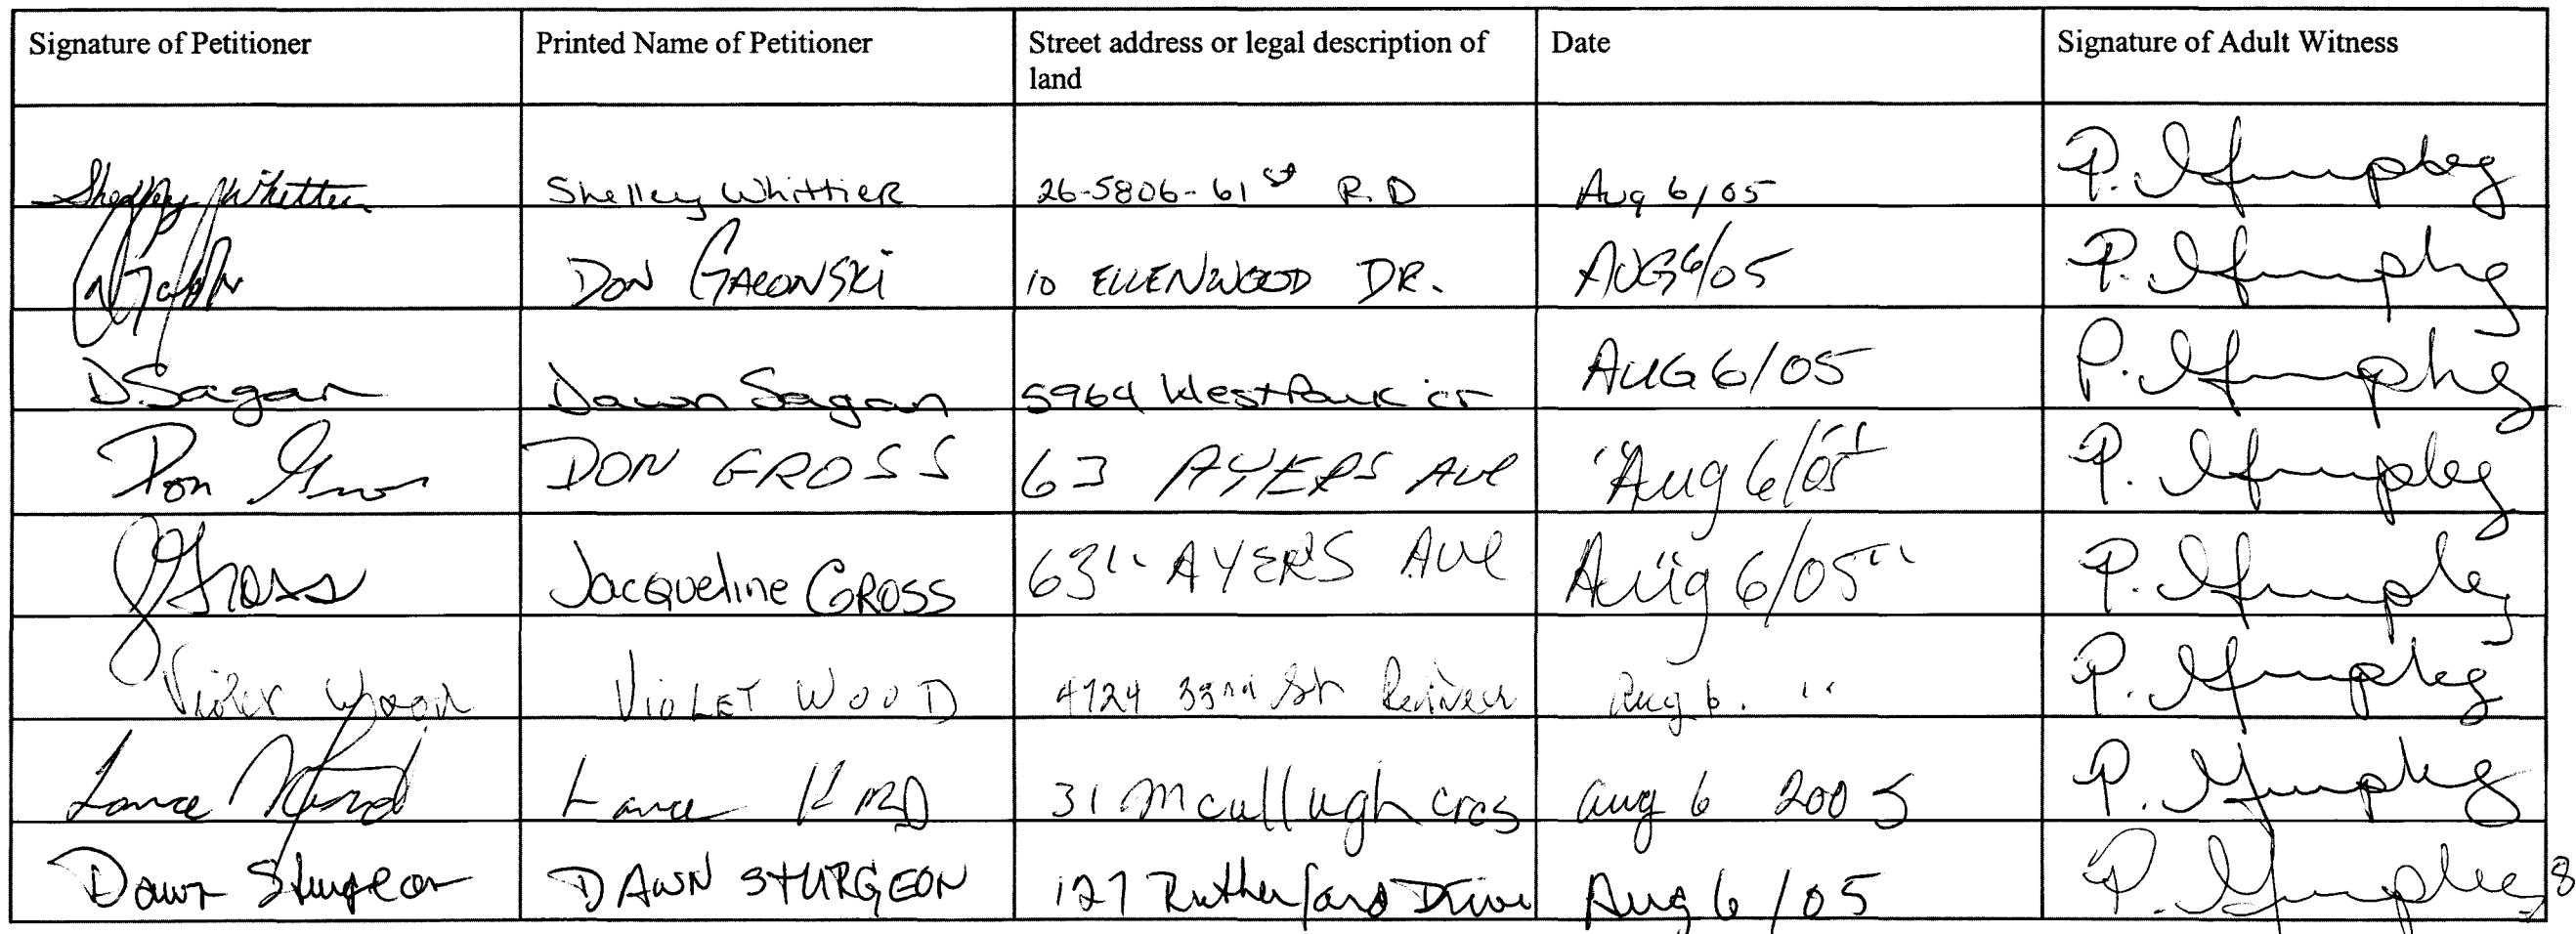 Signature of Petitioner Printed Name of Petitioner Street address or legal description of land Date Signature of Adult Witness
Shelley Whittier Shelley Whittier 26-5806-61st R.D Aug 6/05 P.
DON 10 ELLENWOOD DR. AUG 6/05 P.
D. Sagan Dawn Sagan 5964 West Park cr AUG 6/05 P.
Don Gross DON GROSS 63 AYERS AVE Aug 6/05 P.
J Gross Jacqueline GROSS 63 " AYERS AVE Aug 6/05 " P.
Violet Wood VIOLET WOOD 4724 33rd St Red Deer Aug 6. " P.
Lance Lance 31 Mcullugh cres aug 6 2005 P.
Dawn Sturgeon DAWN STURGEON 127 Rutherford Drive Aug 6/05 P.
8